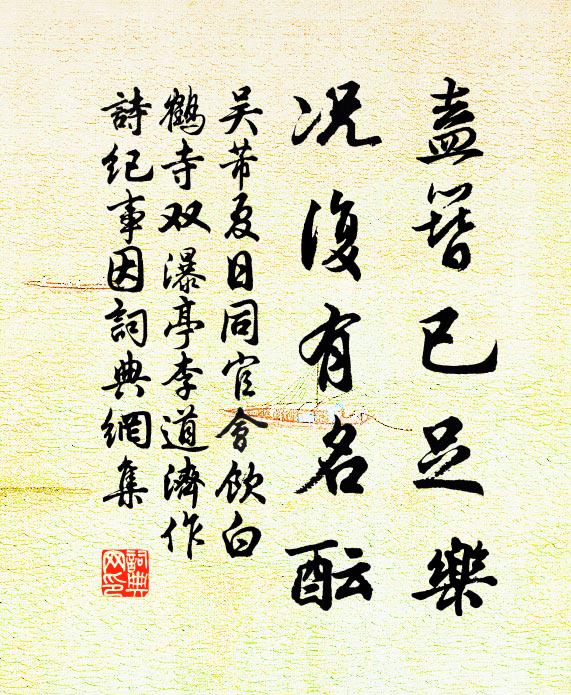 盍簪已足樂
况復有名酝
吴芾夏日同官會飲白
鶴寺双瀑亭李道濟作
詩纪事因詞典網集
詞典网印